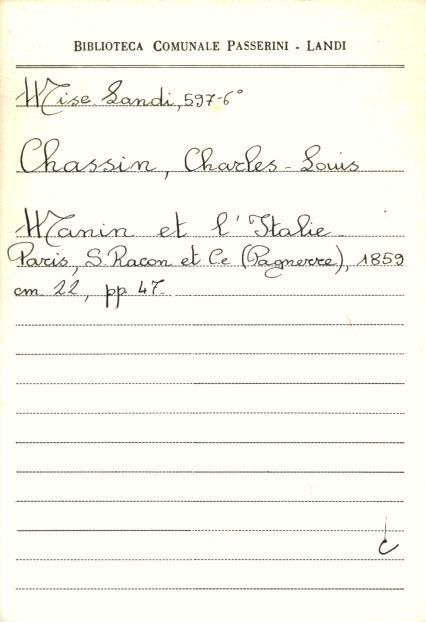 BIBLIOTECA COMUNALE PASSERINI - LANDI
Misc. Landi, 597-6°
Chassin, Charles-Louis
Manin et l'Italie
Paris, S. Racon et C.e (Pagnerre), 1859
cm. 22, pp 47.